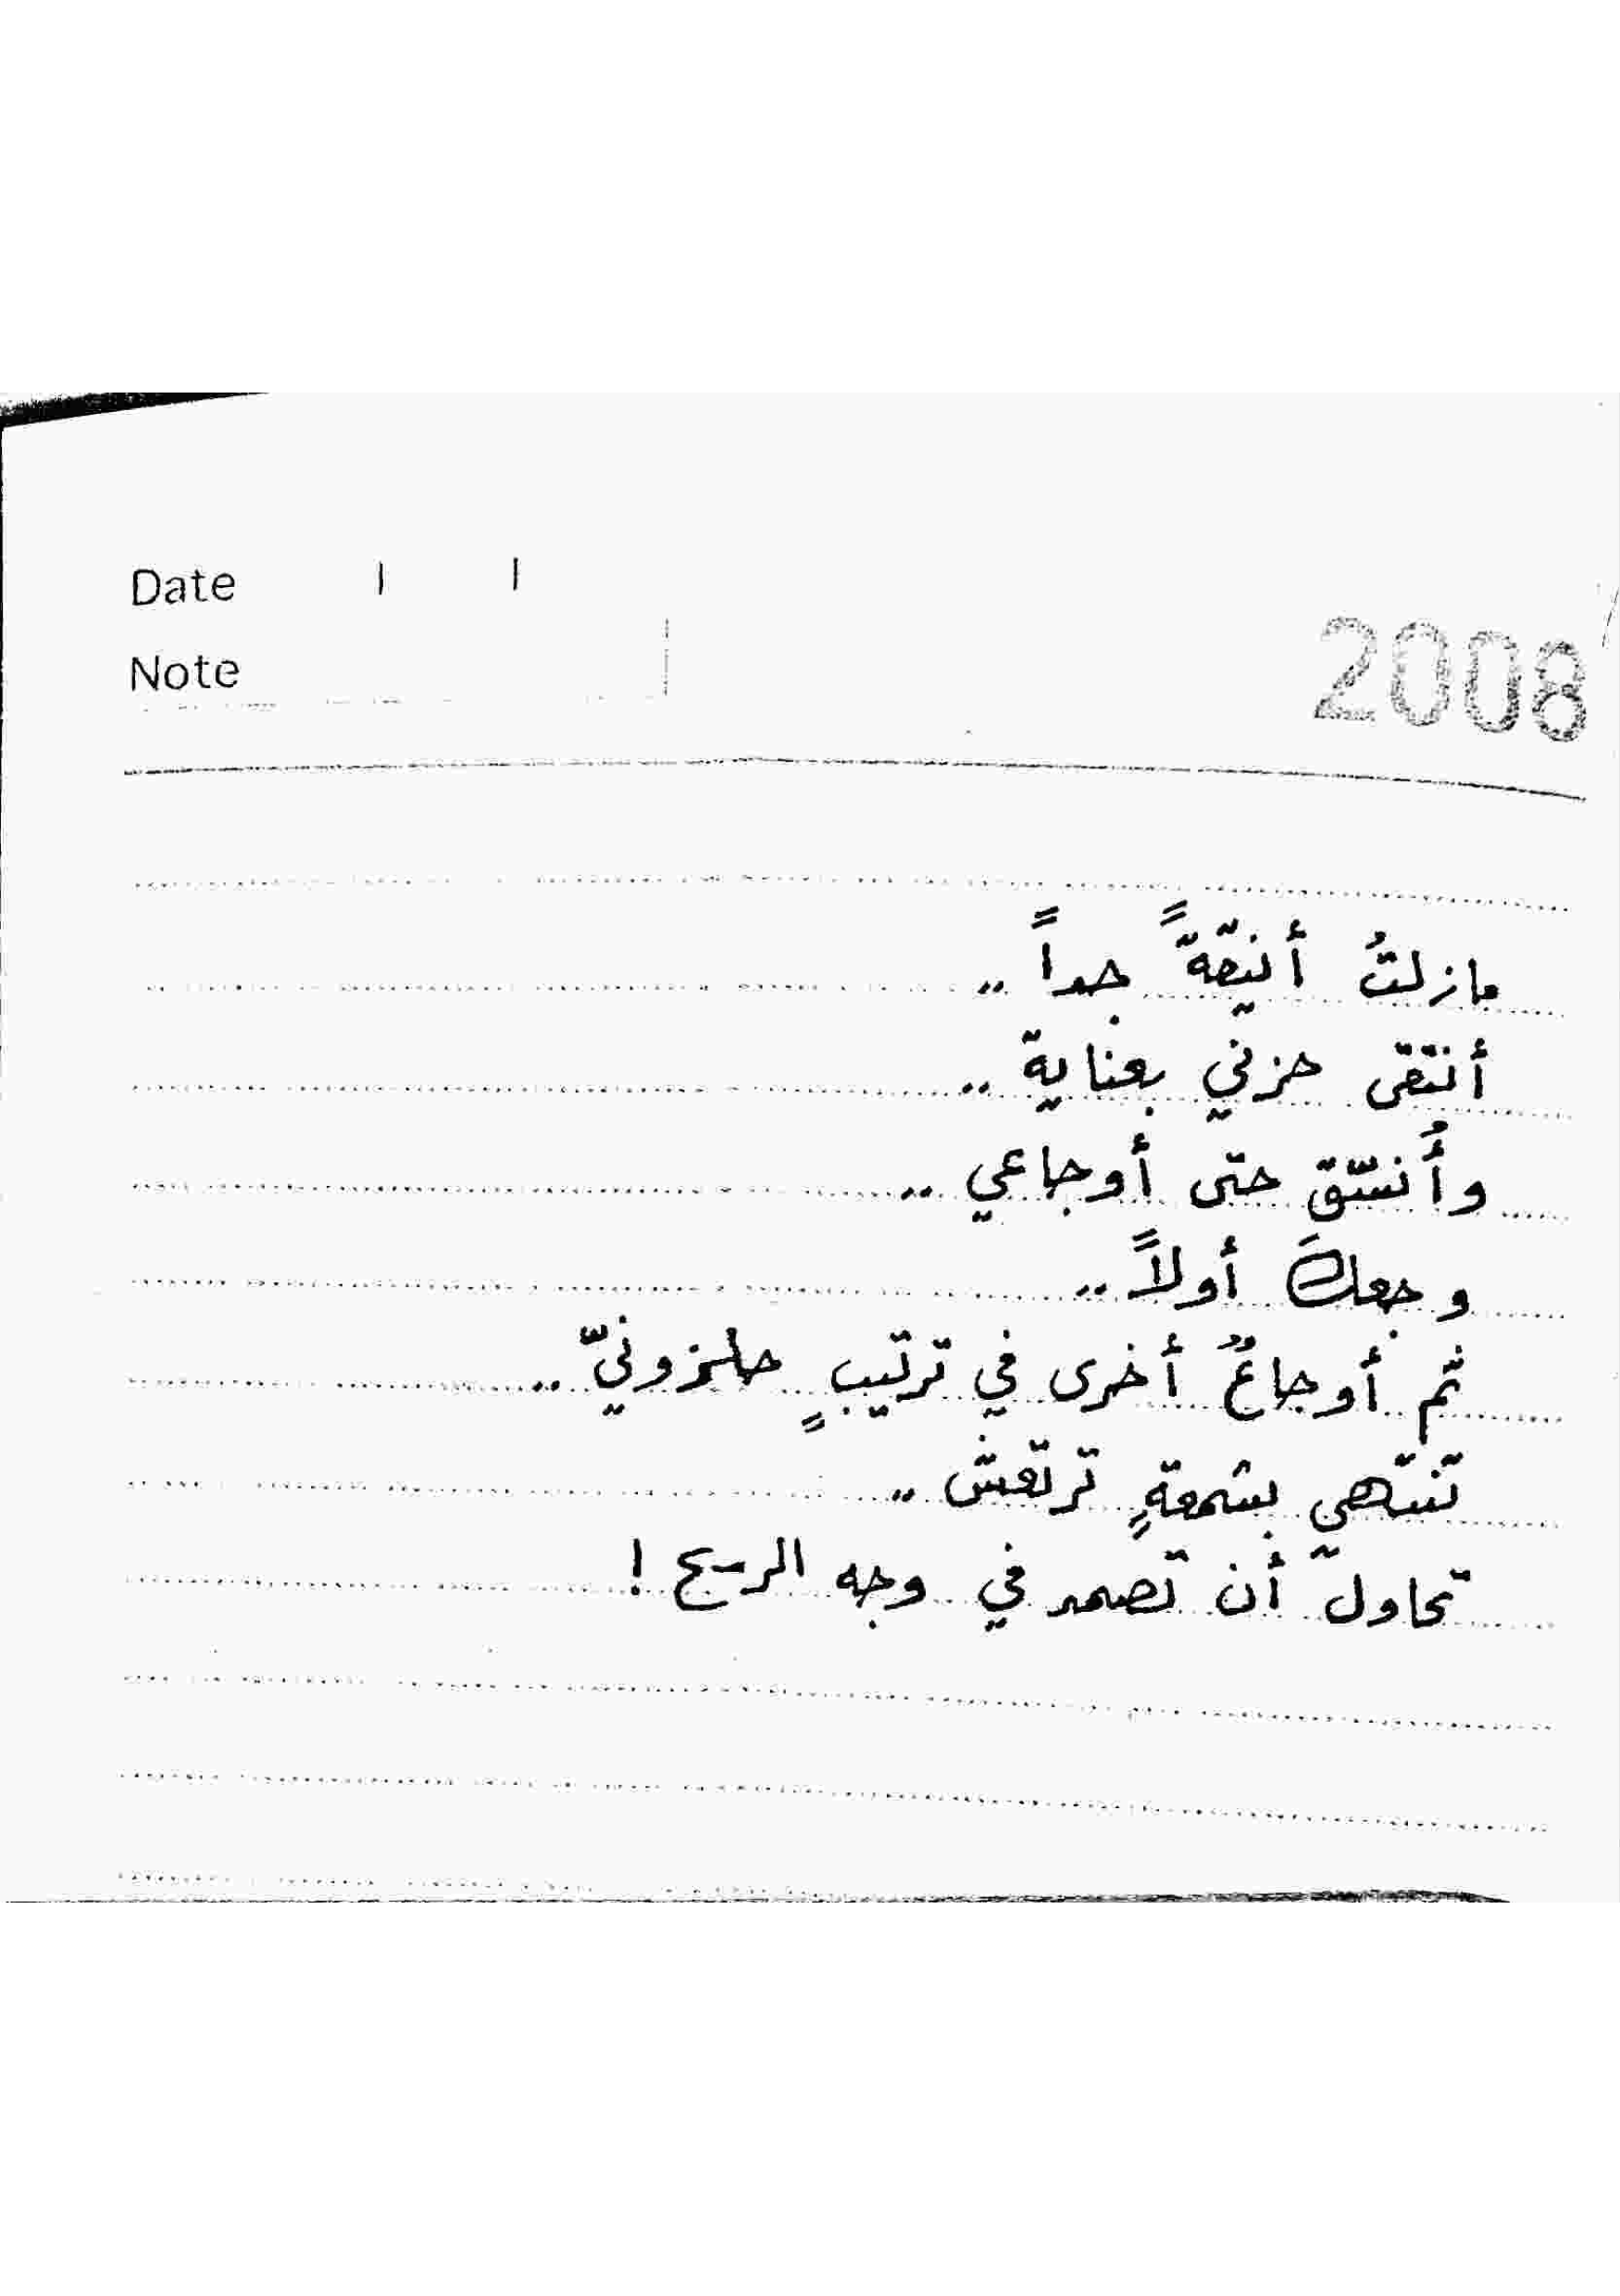 Date / /
Note
2008
مازلتُ أنيقةً جداً ..
أنتقى حزني بعناية ..
وأُنسّق حتى أوجاعي ..
وجعكَ أولاً ..
ثم أوجاعٌ أخرى في ترتيبٍ حلزونيّ ..
تنتهي بشمعةٍ ترتعش ..
تحاول أن تصمد في وجه الريح !